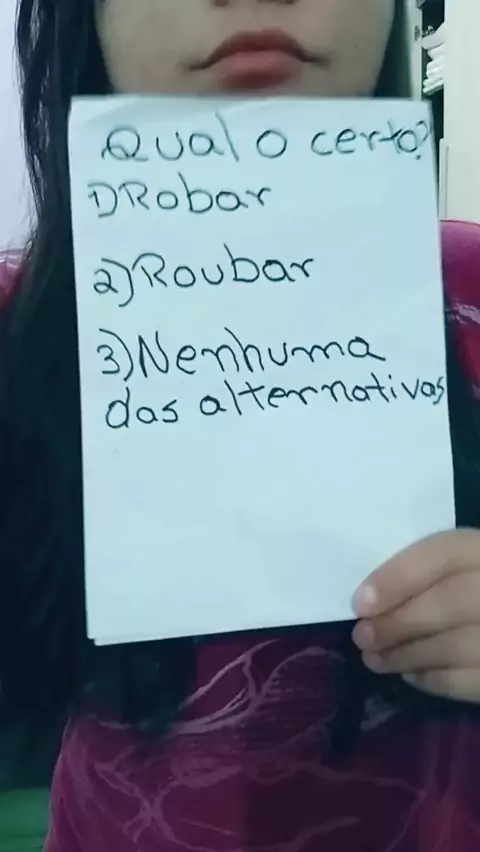 Qual o certo?
1)Robar
2)Roubar
3)Nenhuma
das alternativas